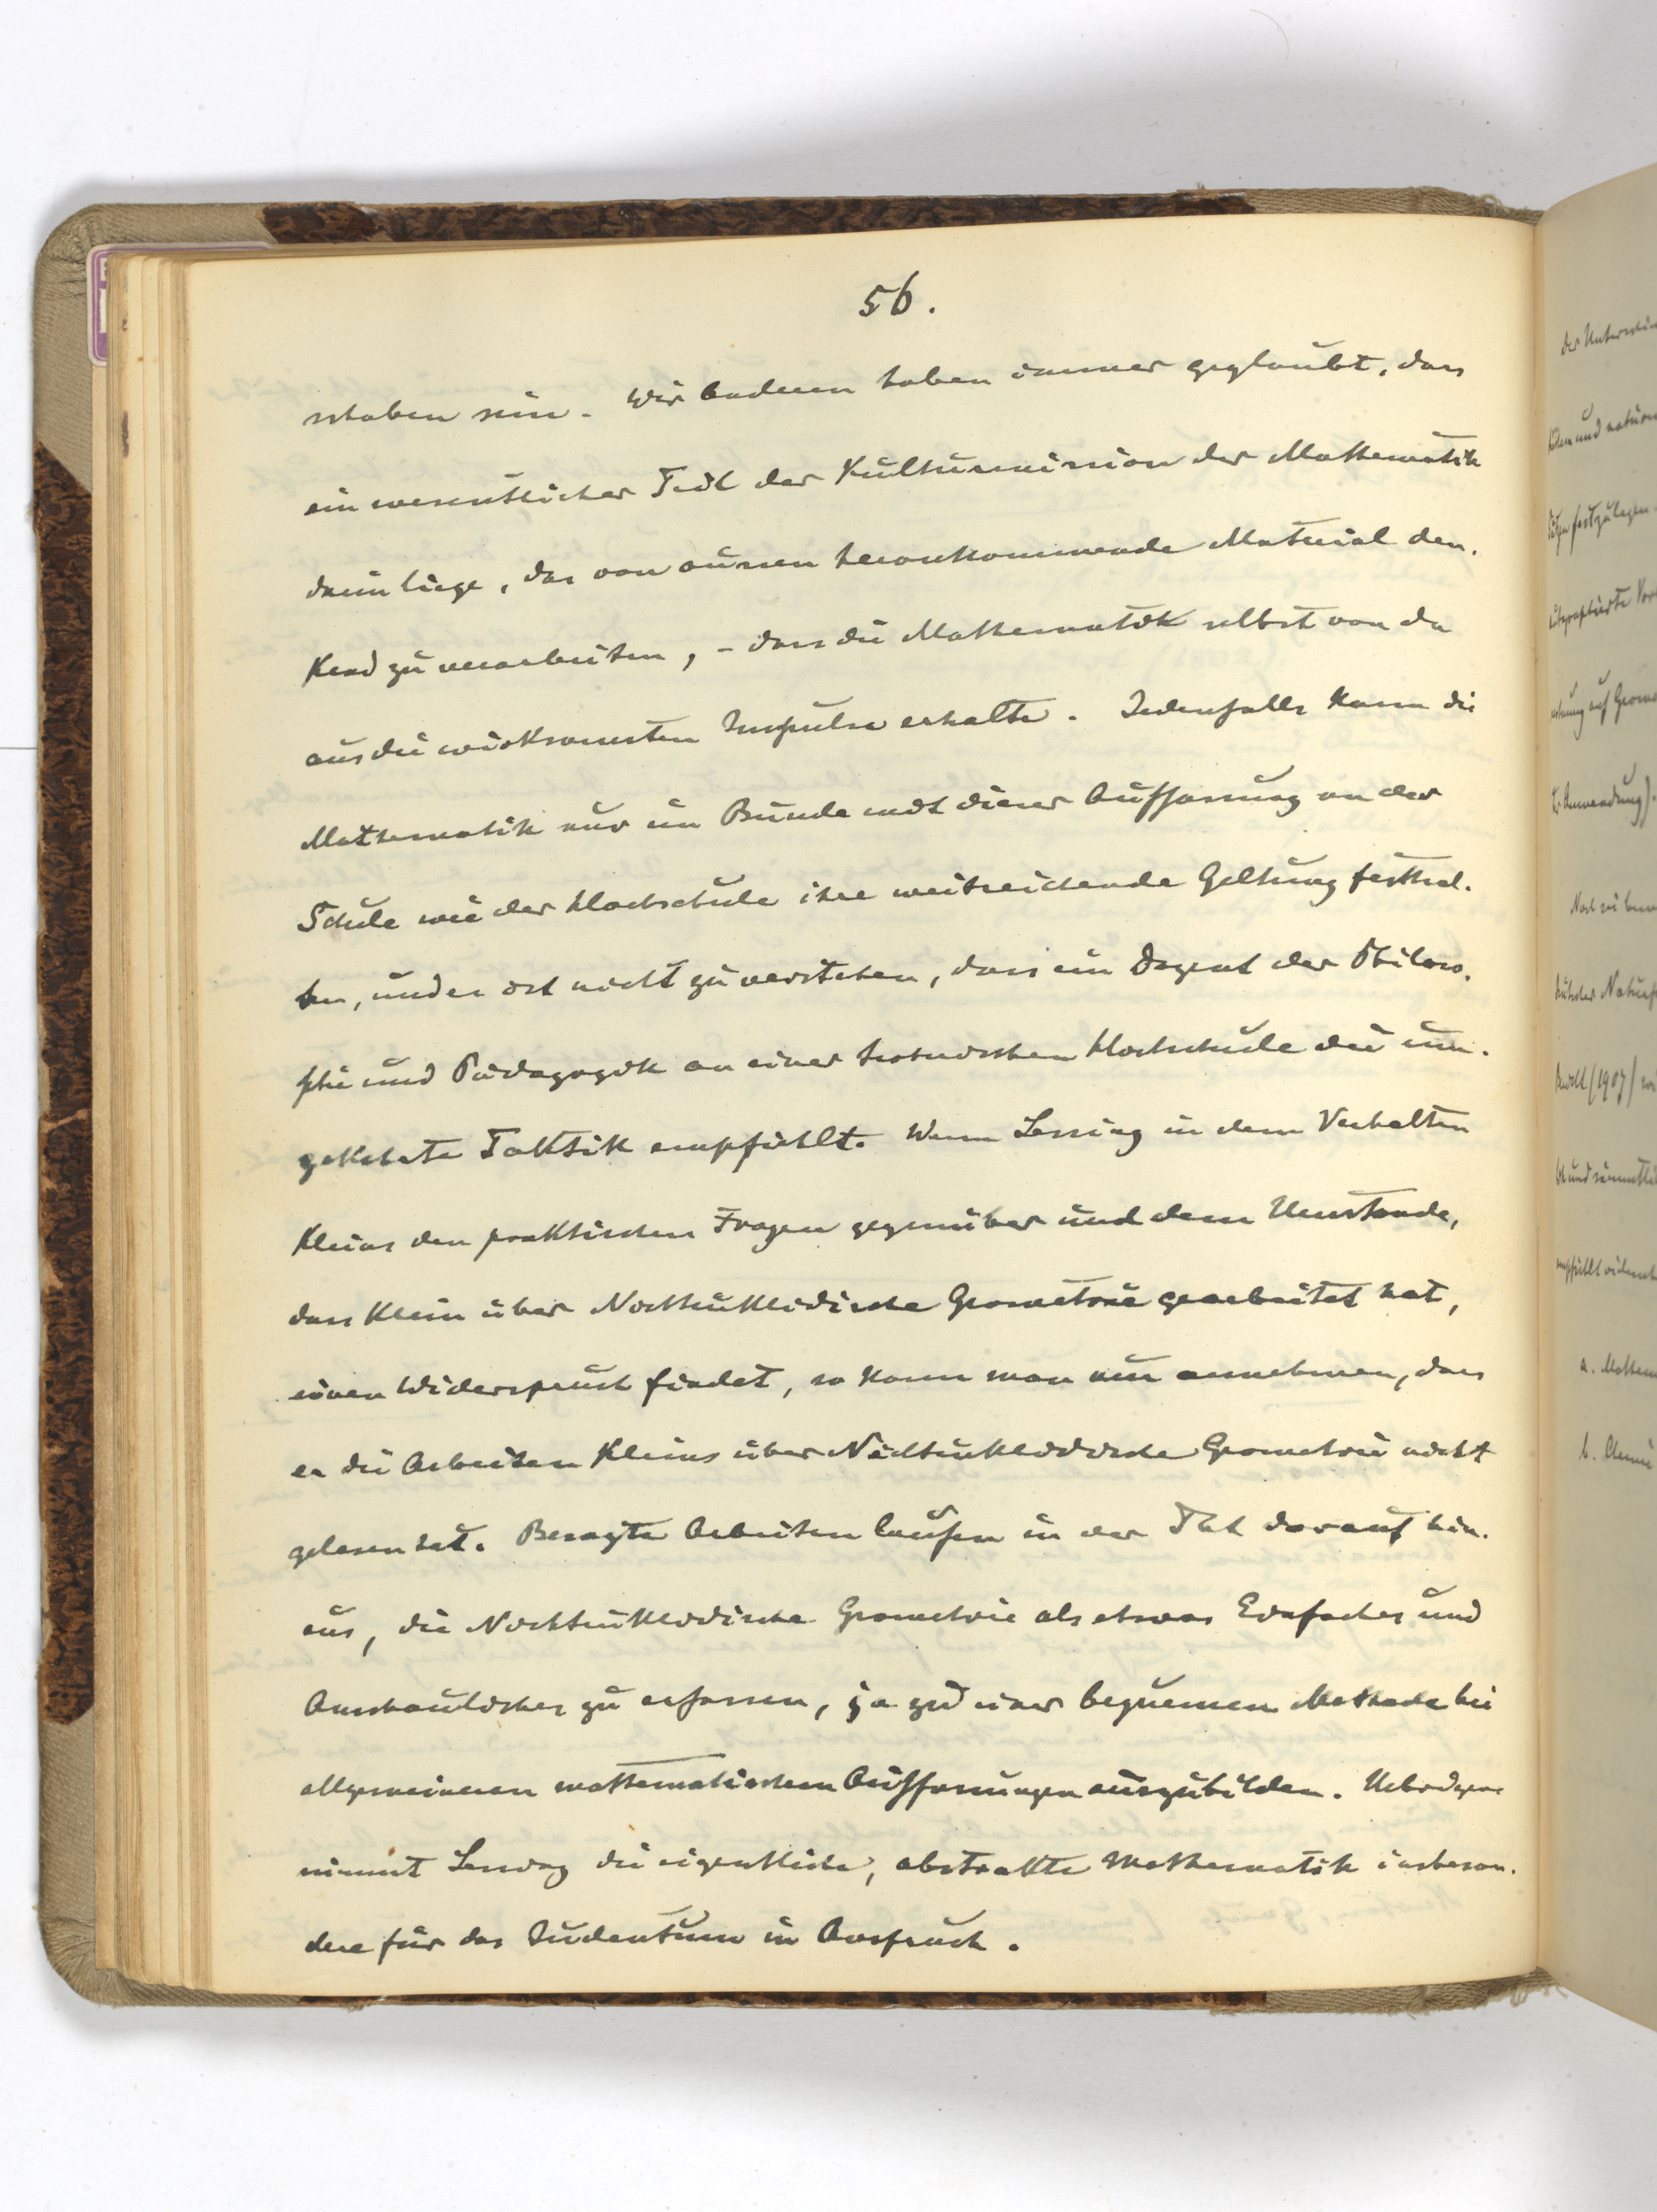 56.
rhaben sein. Wir anderen haben immer geglaubt, dass
ein wesentlicher Teil der Kulturmission der Mathematik
darin liege, das von aussen herankommende Material den-
kend zu verarbeiten, - dass die Mathematik selbst von da
aus die wirksamsten Impulse erhalte. Jedenfalls kann die
Mathematik nur im Bunde mit dieser Auffassung an der
Schule wie der Hochschule ihre weitreichende Geltung festhal-
ten, und es ist nicht zu verstehen, dass ein Dozent der Philoso-
phie und Pädagogik an einer technischen Hochschule die um-
gekehrte Taktik empfiehlt. Wenn Lessing in dem Verhalten
Kleins den praktischen Fragen gegenüber und dem Umstande,
dass Klein über Nichteuklidische Geometrie gearbeitet hat,
einen Widerspruch findet, so kann man nur annehmen, dass
er die Arbeiten Kleins über Nichteuklidische Geometrie nicht
gelesen hat. Besagte Arbeiten laufen in der That darauf hin-
aus, die Nichteuklidische Geometrie als etwas Einfaches und
Anschauliches zu erfassen, ja zu einer bequemen Methode bei
allgemeineren mathematischen Auffassungen auszubilden. Uebrigens
nimmt Lessing die eigentliche, abstrakte Mathematik insbeson-
dere für das Judentum in Anspruch.
der
und
festzulegen
auf Geome
Anwendung).
Noch sei
Natur
(1907)
und
empfiehlt
a. Mathem
b.